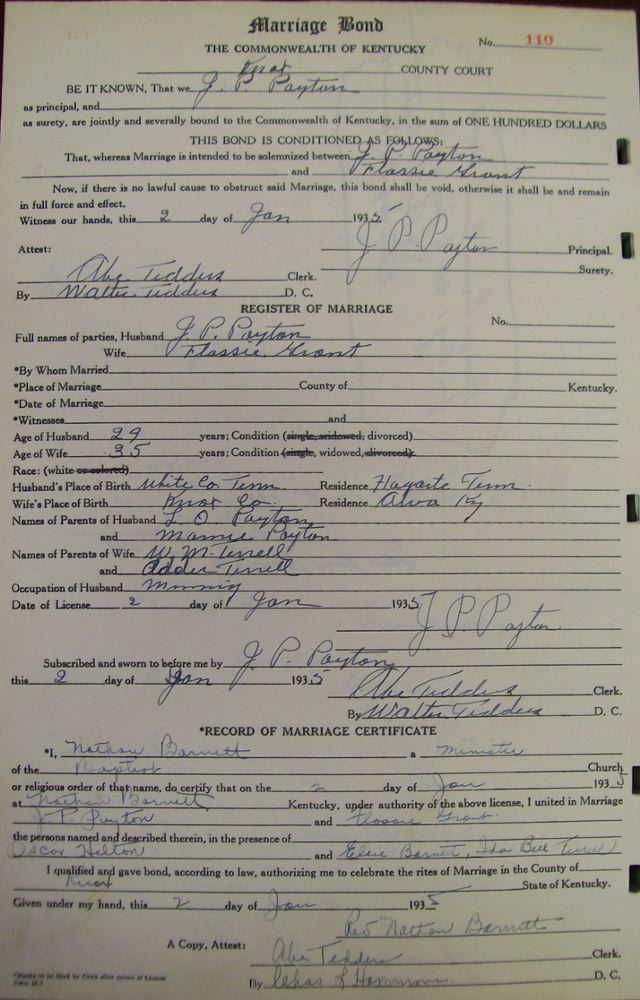 Marriage Bond
THE COMMONWEALTH OF KENTUCKY No. 110
Knox COUNTY COURT
BE IT KNOWN, That we J. P. Payton
as principal, and
as surety, are jointly and severally bound to the Commonwealth of Kentucky, in the sum of ONE HUNDRED DOLLARS
THIS BOND IS CONDITIONED AS FOLLOWS:
That, whereas Marriage is intended to be solemnized between J. P. Payton
and Flossie Grant
Now, if there is no lawful cause to obstruct said Marriage, this bond shall be void, otherwise it shall be and remain
in full force and effect.
Witness our hands, this 2 day of Jan 1935
Attest: J P Payton Principal.
Abe Tedders Clerk. Surety.
By Walter Tedders D. C.
REGISTER OF MARRIAGE
No.
Full names of parties, Husband J. P. Payton
Wife Flossie Grant
*By Whom Married
*Place of Marriage County of Kentucky.
*Date of Marriage
*Witnesses and
Age of Husband 29 years; Condition (single, widowed, divorced)
Age of Wife 35 years; Condition (single, widowed, divorced)
Race: (white or colored)
Husband's Place of Birth White Co. Tenn Residence Tenn.
Wife's Place of Birth Knox Co. Residence Alva Ky
Names of Parents of Husband L. O. Payton
and Mamie Payton
Names of Parents of Wife W. M. Terrell
and Adder Terrell
Occupation of Husband Mining
Date of License 2 day of Jan 1935
J P Payton
Subscribed and sworn to before me by J. P. Payton
this 2 day of Jan 1935
Abe Tedders Clerk.
By Walter Tedders D. C.
*RECORD OF MARRIAGE CERTIFICATE
*I, Nathan Barnett a Minister
of the Baptist Church
or religious order of that name, do certify that on the 2 day of Jan 1935
at Nathan Barnett, Kentucky, under authority of the above license, I united in Marriage
J. P. Payton and Flossie Grant
the persons named and described therein, in the presence of
Oscar Helton and Elsie Barnett, Ida Bell Terrell
I qualified and gave bond, according to law, authorizing me to celebrate the rites of Marriage in the County of
Knox State of Kentucky.
Given under my hand, this 2 day of Jan 1935
Rev Nathan Barnett
A Copy, Attest: Abe Tedders Clerk.
By Chas L Hammons D. C.
*Blanks to be filled by Clerk after return of License